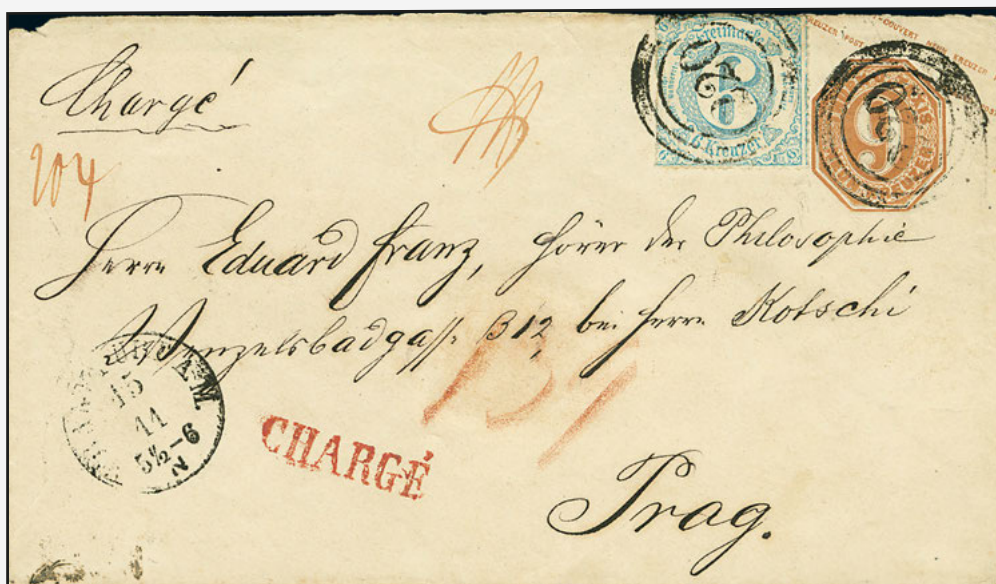 Chargé
204
Freimarke
6
6 Kreuzer
220
9
220
Herrn Eduard Franz, Hörer der Philosophie
Wenzelsbadgasse 312 bei Herrn Kotschi
FRANKFURT A.M.
15
11
5½-6
N
CHARGÉ
Prag.